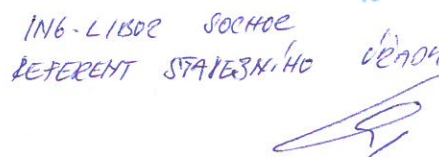 ING. LIBOR SOCHOR
REFERENT STAVEBNÍHO ÚŘADU